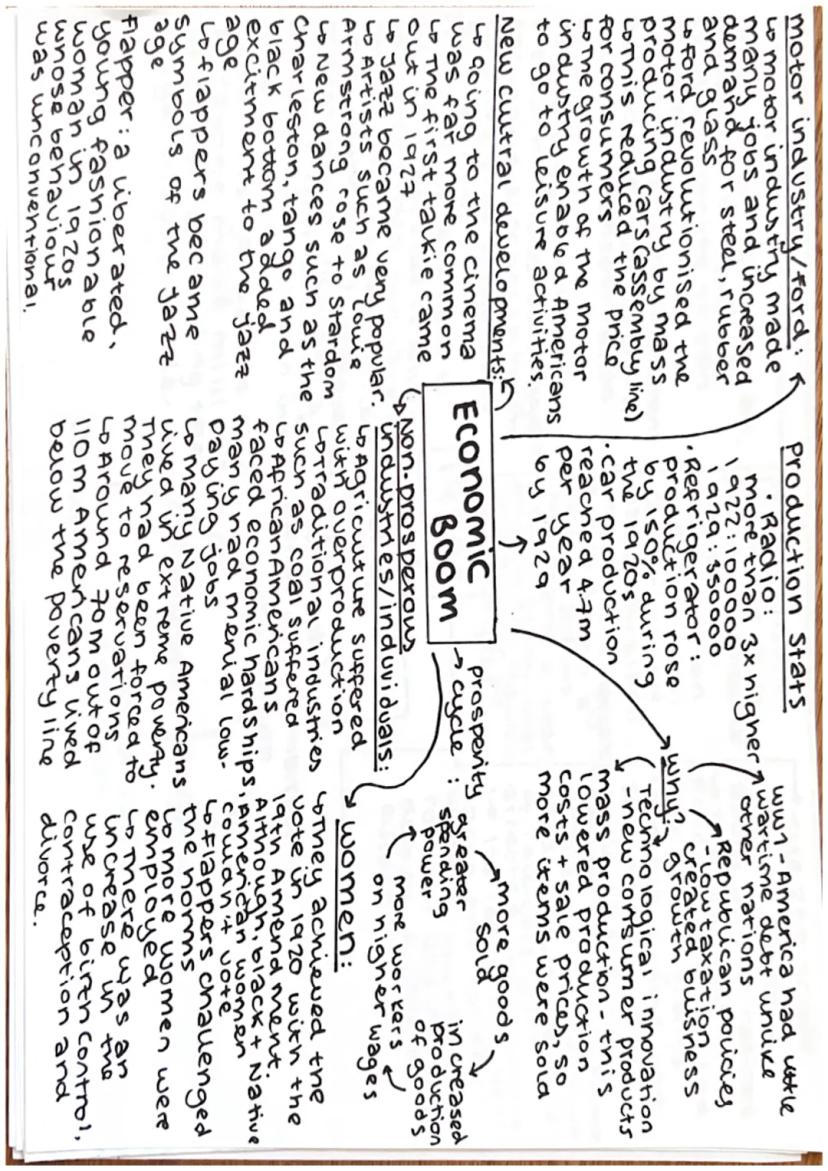 motor industry/Ford:
↳ motor industry made
many jobs and increased
demand for steel, rubber
and glass
↳ Ford revolutionised the
motor industry by mass
producing cars (assembly line)
↳ This reduced the price
for consumers
↳ The growth of the motor
industry enabled Americans
to go to leisure activities.
Production Stats
· Radio:
more than 3x higher
1922: 100000
1929: 350000
· Refrigerator:
production rose
by 150% during
the 1920s
· car production
reached 4.7m
per year
by 1929
Why?
WW1 - America had little
wartime debt unlike
other nations
Republican policies
- low taxation
created buisness
growth
Technological innovation
- new consumer products
mass production - this
lowered production
costs + sale prices, so
more items were sold
Economic
Boom
New cultral developments:
↳ going to the cinema
was far more common
↳ The first talkie came
out in 1927
↳ Jazz became very popular.
↳ Artists such as Louie
Armstrong rose to stardom
↳ New dances such as the
Charleston, tango and
black bottom added
excitment to the jazz
age
↳ flappers became
symbols of the jazz
age
Flapper: a liberated,
young fashionable
woman in 1920s
whose behaviour
was unconventional.
Non-prosperous
industries/induviduals:
↳ Agriculture suffered
with overproduction
↳ Traditional industries
such as coal suffered
↳ African Americans
faced economic hardships,
many had menial low-
paying jobs
↳ many Native Americans
lived in extreme poverty.
They had been forced to
move to reservations
↳ Around 70m out of
110m Americans lived
below the poverty line
prosperity
cycle:
more goods
sold
increased
production
of goods
more workers
on higher wages
greater
spending
power
women:
↳ They achieved the
vote in 1920 with the
19th Amendment.
Although, black + Native
American women
couldn't vote
↳ Flappers challenged
the norms
↳ more women were
employed
↳ There was an
increase in the
use of birth control,
contraception and
divorce.